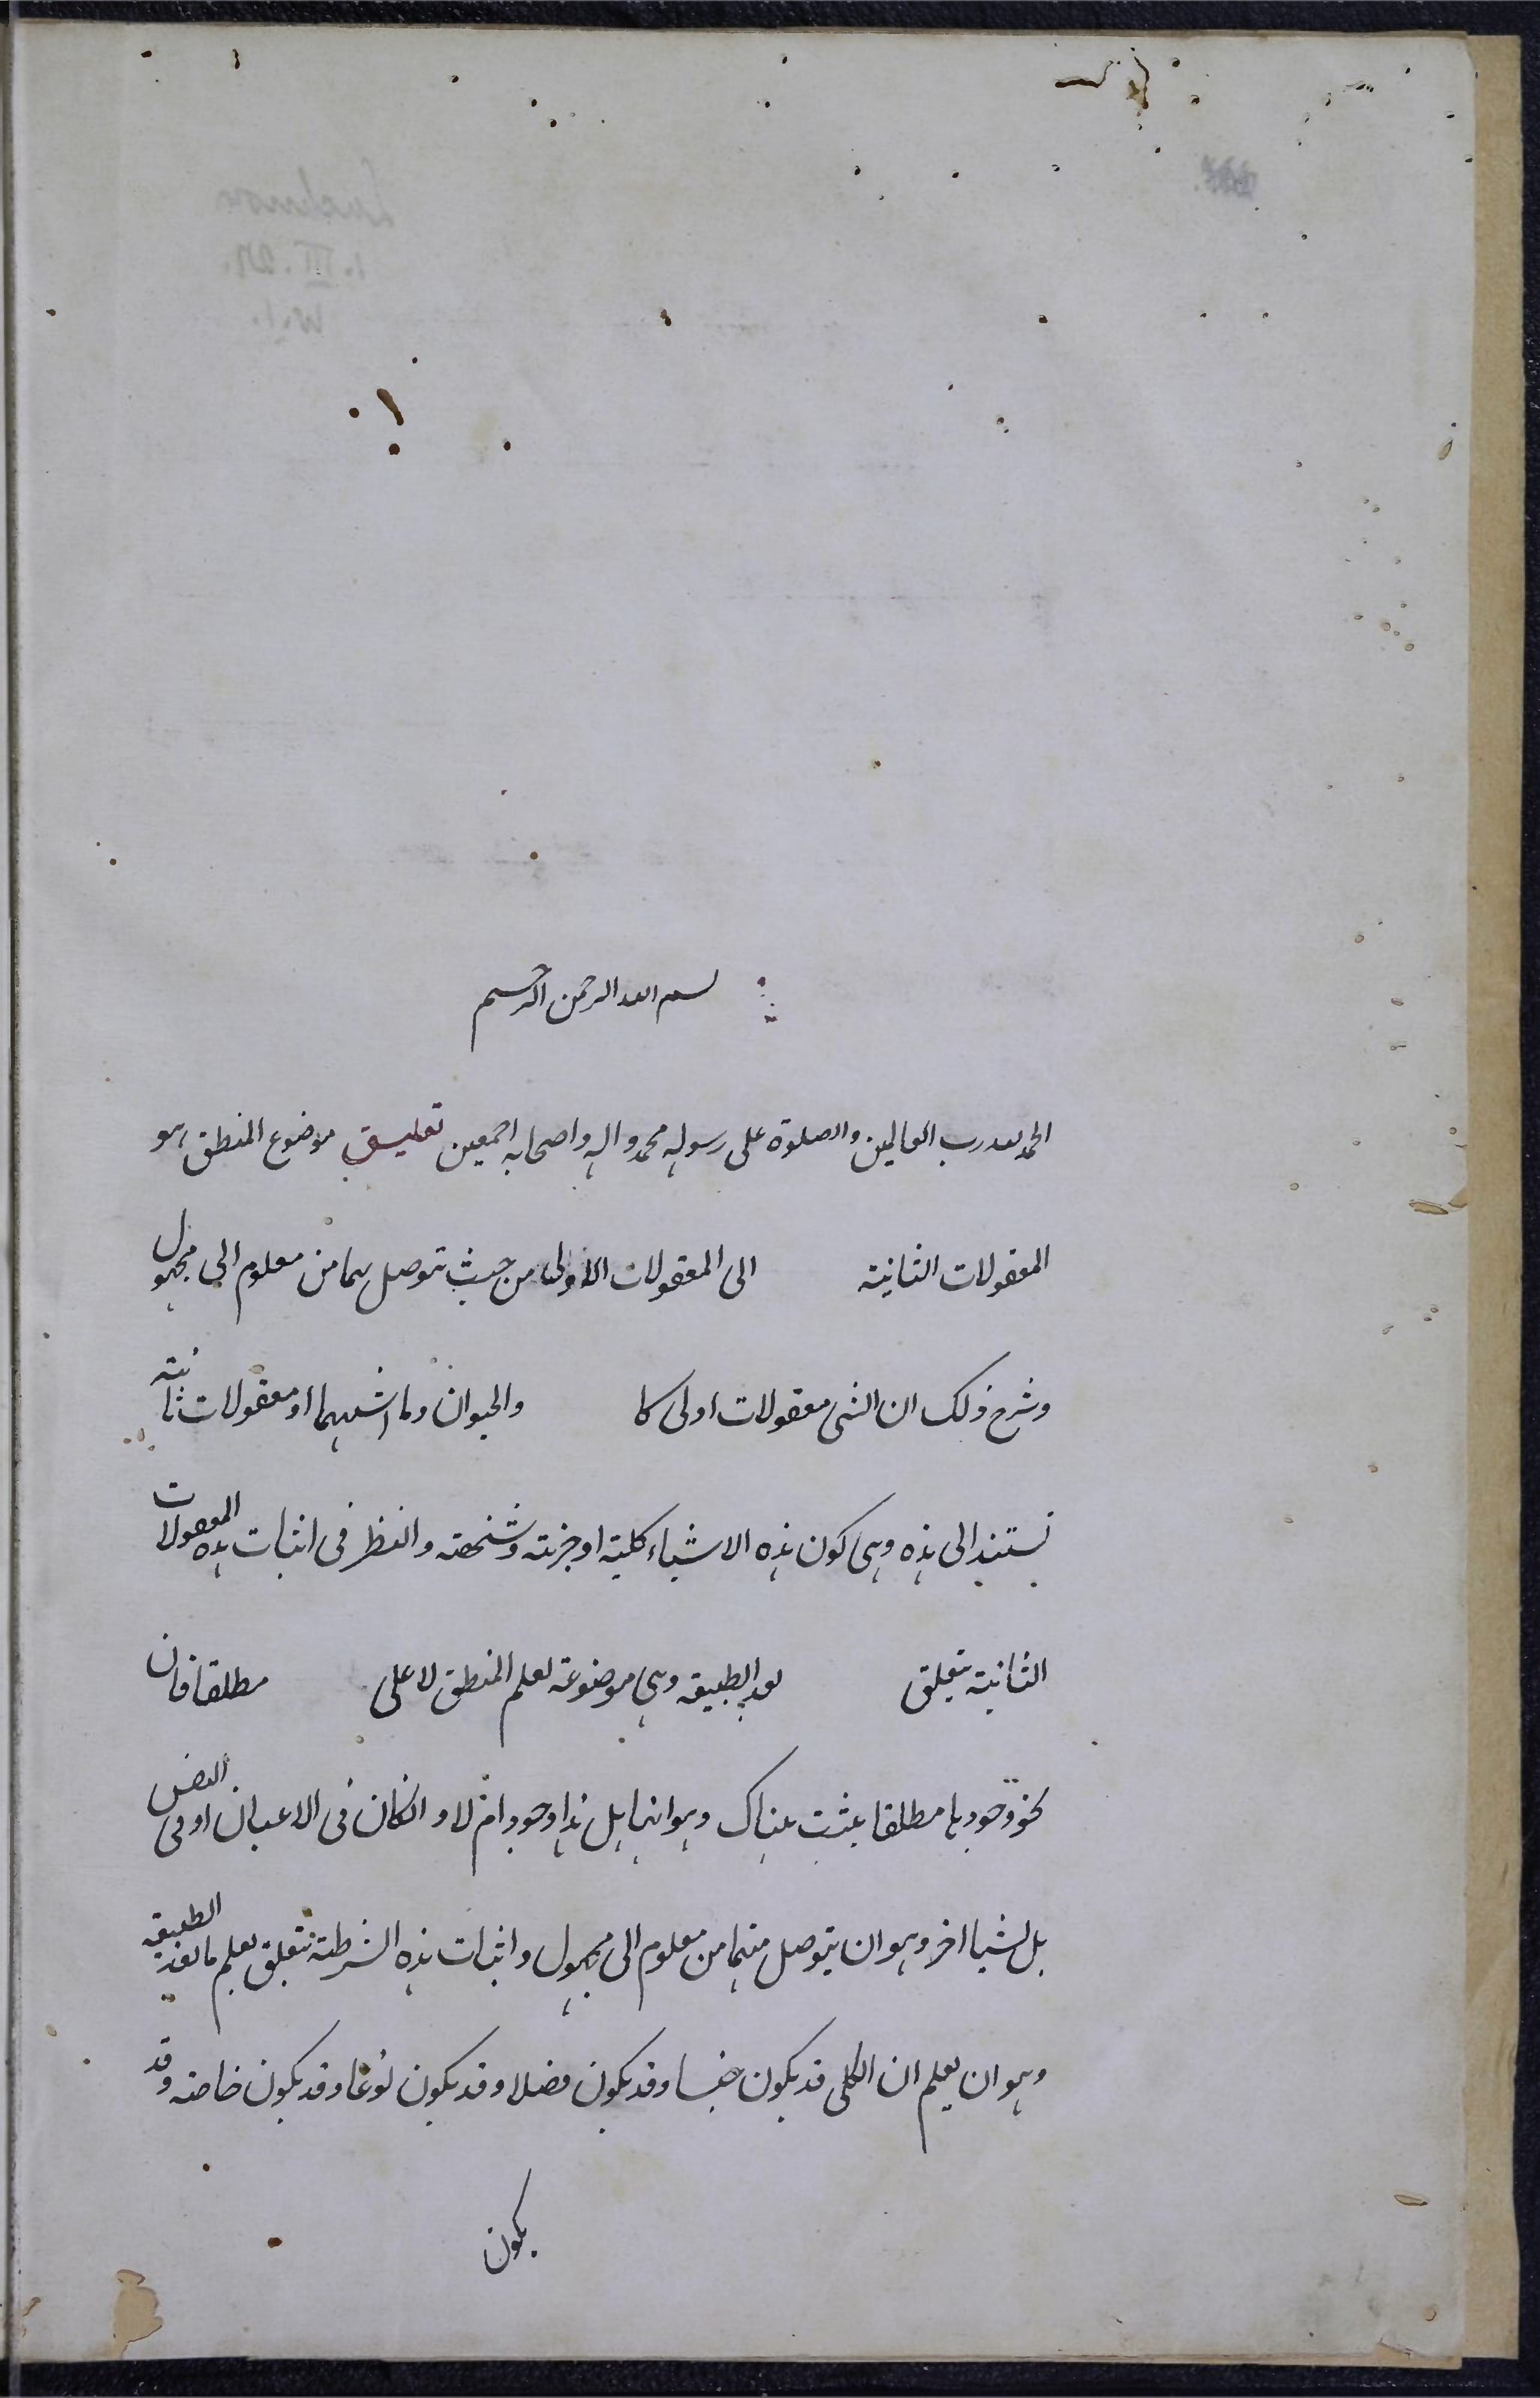 بسم الله الرحمن الرحيم
الحمد لله رب العالمين والصلوة على رسوله محمد واله واصحابه اجمعين تعليق موضوع المنطق هو
المعقولات الثانية الى المعقولات الاولى من حيث توصل بها من معلوم الى مجهول
وشرح ذلك ان الشى معقولات اولى كا والحيوان وما اشبههما او معقولات ثانية
تستند الى هذه وهى كون هذه الاشياء كلية او جزئية وشخصية والنظر فى اثبات هذه المعقولات
الثانية يتعلق بعد الطبيعة وهى موضوعة لعلم المنطق لا على مطلقا فان
نحو وجودها مطلقا يثبت هناك وهو انها هل لها وجود ام لا و انكان فى الاعيان او فى النفس
بل لشيا اخر وهو ان يتوصل منها من معلوم الى مجهول واثبات هذه الشرطية يتعلق بعلم ما بعد الطبيعة
وهو ان يعلم ان الكلى قد يكون جنسا وقد يكون فصلا وقد يكون نوعا وقد يكون خاصة وقد
يكون